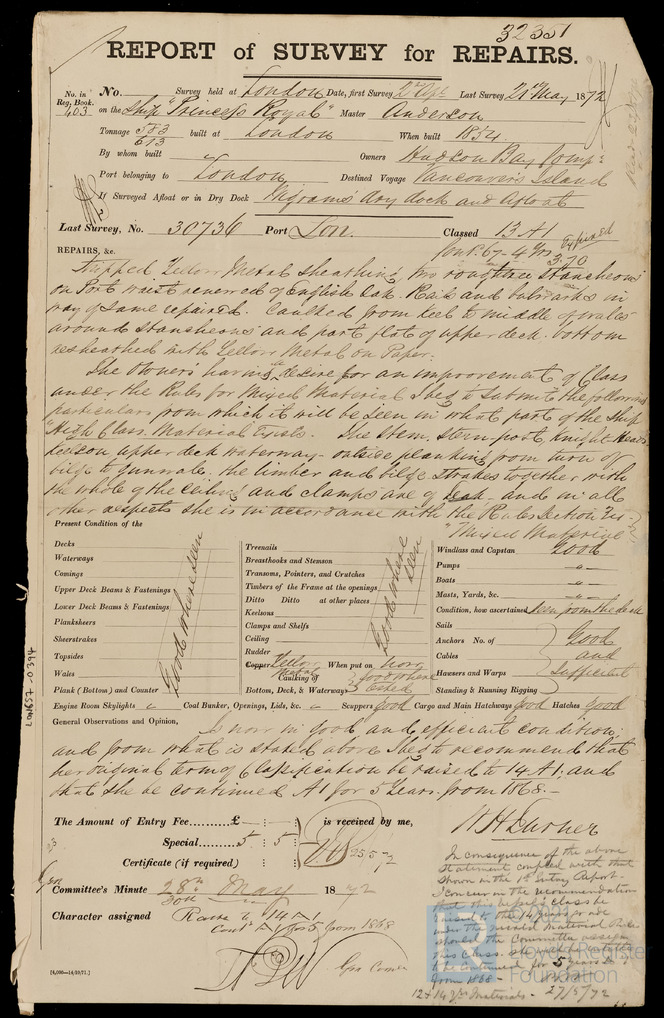 32351
REPORT of SURVEY for REPAIRS.
No. in Reg. Book. 403
No. Survey held at London Date, first Survey 2nd Last Survey 21st May 1872
on the Ship "Princess Royal" Master Anderson
Tonnage 583 613 built at London When built 1854
By whom built Owners Hudson Bay Comp.
Port belonging to London Destined Voyage Vancouvers Island
If Surveyed Afloat or in Dry Dock Wigrams dry dock and afloat
Last Survey, No. 30736 Port Lon. Classed 13 A1
Cont. 67-4 Yrs Expired 3.70
REPAIRS, &c.
Stripped Yellow Metal Sheathing, two rough tree Stancheons
on Port waist renewed of English Oak. Rails and bulwarks in
way of same repaired. Caulked from keel to middle of wales
around Stancheons and part flat of upper deck. bottom
resheathed with Yellow Metal on Paper.
The Owners having a desire for an improvement of Class
under the Rules for Mixed Material I beg to Submit the following
particulars from which it will be seen in what part of the Ship
High Class Material Exists. The Stem, Sternpost, Knight Heads
keelson upper deck waterway outside planking from turn of
bilge to gunwale. the limber and bilge strakes together with
the whole of the Ceiling and clamps are of and in all
other respects she is in accordance with the Rules Section
"Mixed Material"
Present Condition of the
Decks
Waterways
Comings
Upper Deck Beams & Fastenings
Lower Deck Beams & Fastenings
Planksheers
Sheerstrakes
Topsides
Wales
Plank (Bottom) and Counter
Good where seen
Treenails
Breasthooks and Stemson
Transoms, Pointers, and Crutches
Timbers of the Frame at the openings
Ditto Ditto at other places
Keelsons
Clamps and Shelfs
Ceiling
Rudder
Good where seen
Copper Yellow Metal When put on Now
Caulking of Bottom, Deck, & Waterways Good where tested
Windlass and Capstan Good
Pumps "
Boats "
Masts, Yards, &c. "
Condition, how ascertained Seen from the deck
Sails
Anchors No. of
Cables
Hawsers and Warps
Standing & Running Rigging
Good and Sufficient
Engine Room Skylights Coal Bunker, Openings, Lids, &c. Scuppers good Cargo and Main Hatchways good Hatches Good
General Observations and Opinion, Is now in good and efficient condition
and from what is stated above I beg to recommend that
her original term of Classification be raised to 14 A1. and
that she be continued A1 for 5 Years. from 1868.
The Amount of Entry Fee £ : : is received by me,
Special 5 : 5
Certificate (if required) : :
25/5/72
W H Turner
Committee's Minute 28th May 1872
30th
Character assigned Raise to 14 A1
Cont. A1 for 5 from 1868
In consequence of the above
Statement, coupled with that
Shown in the 1st Entry Report.
I concur in the recommendation
that this vessel's class be
raised to the 14 years grade
under the mixed Material Rule
should the Committee assign
this Class, she will be entitled
to be continued for 5 years
from 1868
12 & 14 Yrs Materials - 27/5/72
[4,000—14/10/71.]
LON657-0394
Lloyd's Register
Foundation